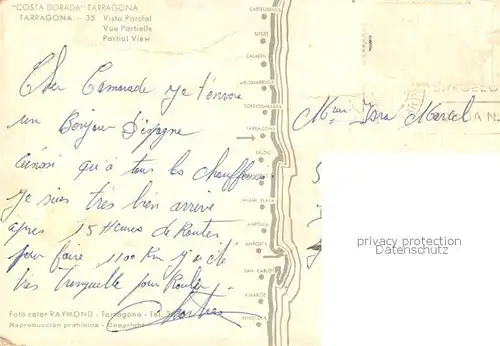 "COSTA DORADA" TARRAGONA
TARRAGONA. - 35 Vista Parcial
Vue Partielle
Partial View
Cher Camarade je t'envoie
un Bonjour d'Espagne
ainsi qu'à tous les chauffeurs
je suis très bien arrivé
apres 15 Heures de Routes
pour faire 1100 Km j'ai été
tres tranquille pour Rouler
Foto color RAYMOND - Tarragona - Tel.
Reproducción prohibida - Copyright
CASTELLDEFELS
SITGES
CALAFELL
TORREDEMBARRA
TARRAGONA
SALOU
MIAMI PLAYA
AMPOLLA
AMPOSTA
SAN CARLOS
VINAROZ
PEÑISCOLA
BARCELO
Marcel
privacy protection
Datenschutz